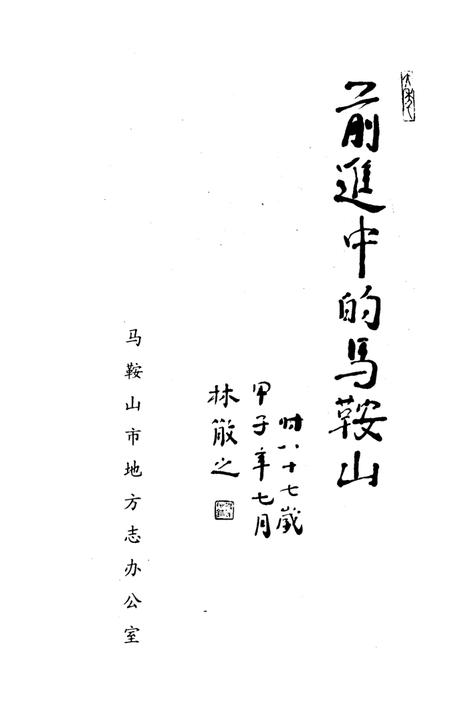 前進中的馬鞍山
时八十七歲
甲子年七月
林散之
马鞍山市地方志办公室